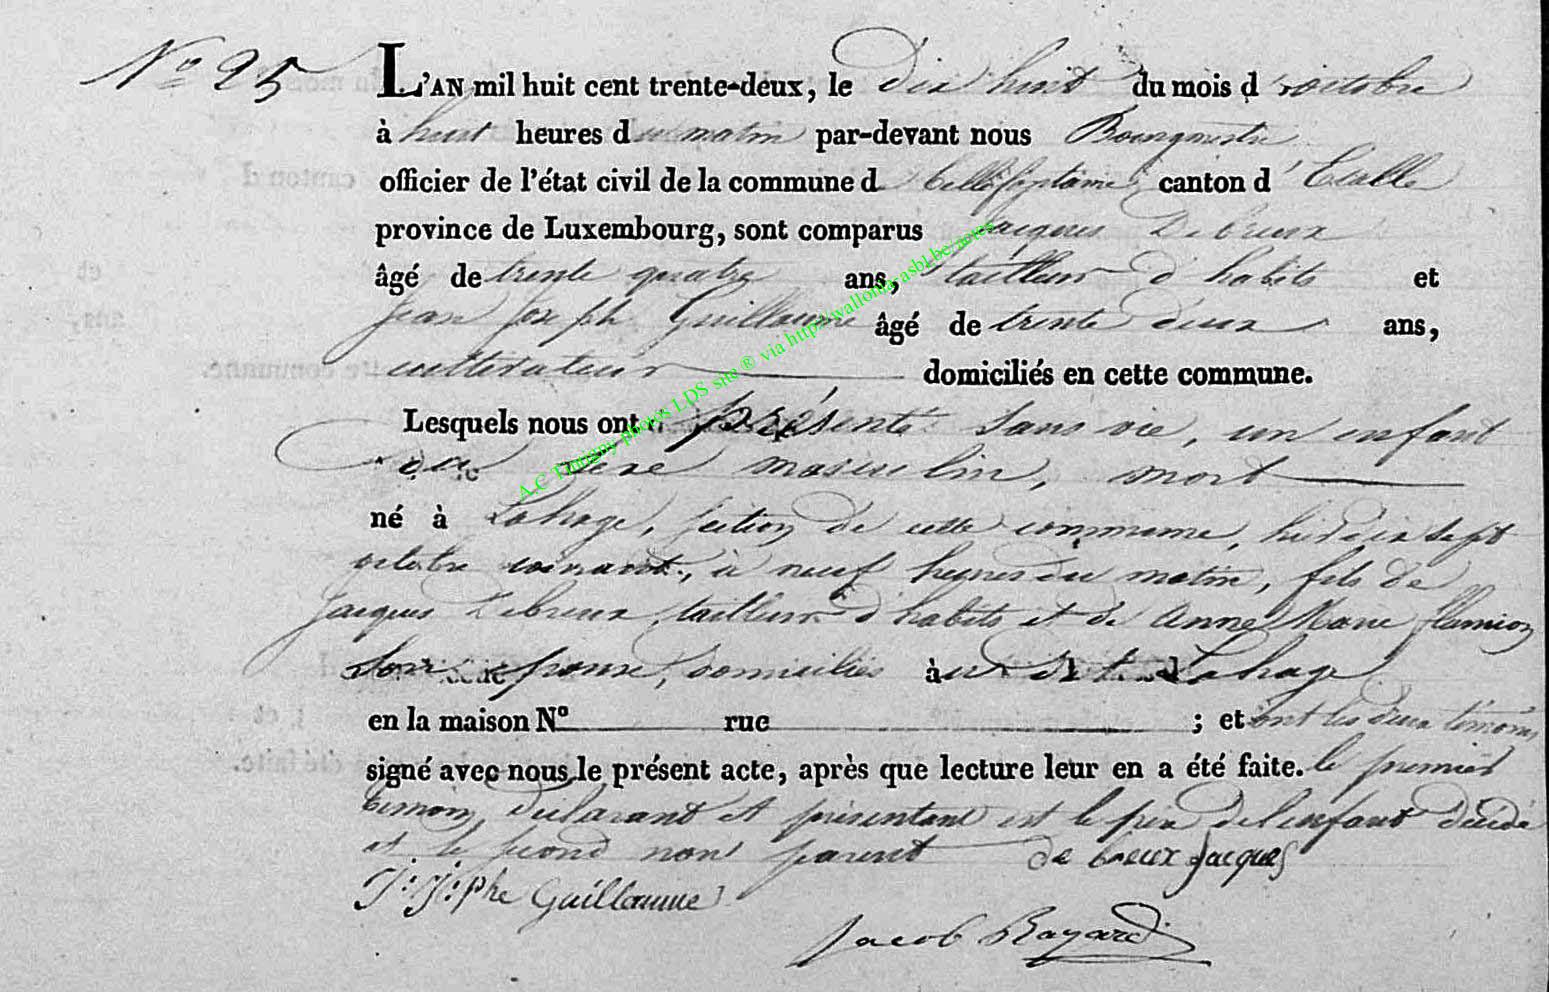 N° 25
L'AN mil huit cent trente-deux, le Dix huit du mois d'octobre
à huit heures du matin par-devant nous Bourgmestre
officier de l'état civil de la commune de Bellefontaine canton d'Etalle
province de Luxembourg, sont comparus Jacques Debreux
âgé de trente quatre ans, tailleur d'habits et
Jean Joseph Guillaume âgé de trente deux ans,
cultivateur domiciliés en cette commune.
Lesquels nous ont présenté sans vie, un enfant
du sexe masculin, mort
né à Lahage, section de cette commune, hier dix sept
octobre courant, à neuf heures du matin, fils de
Jacques Debreux, tailleur d'habits et de Anne Marie flamion
son epouse, domiciliés au dit Lahage
en la maison N° rue ; et ont les deux témoins
signé avec nous le présent acte, après que lecture leur en a été faite. le premier
temoin, déclarant et présentant est le père de l'enfant décédé
et le second non parent de breux Jacques
J: J:phe Guillaume
Jacob Bayard
A.C Timigny photos LDS site ® via http://wallonia-asbl.be/actes